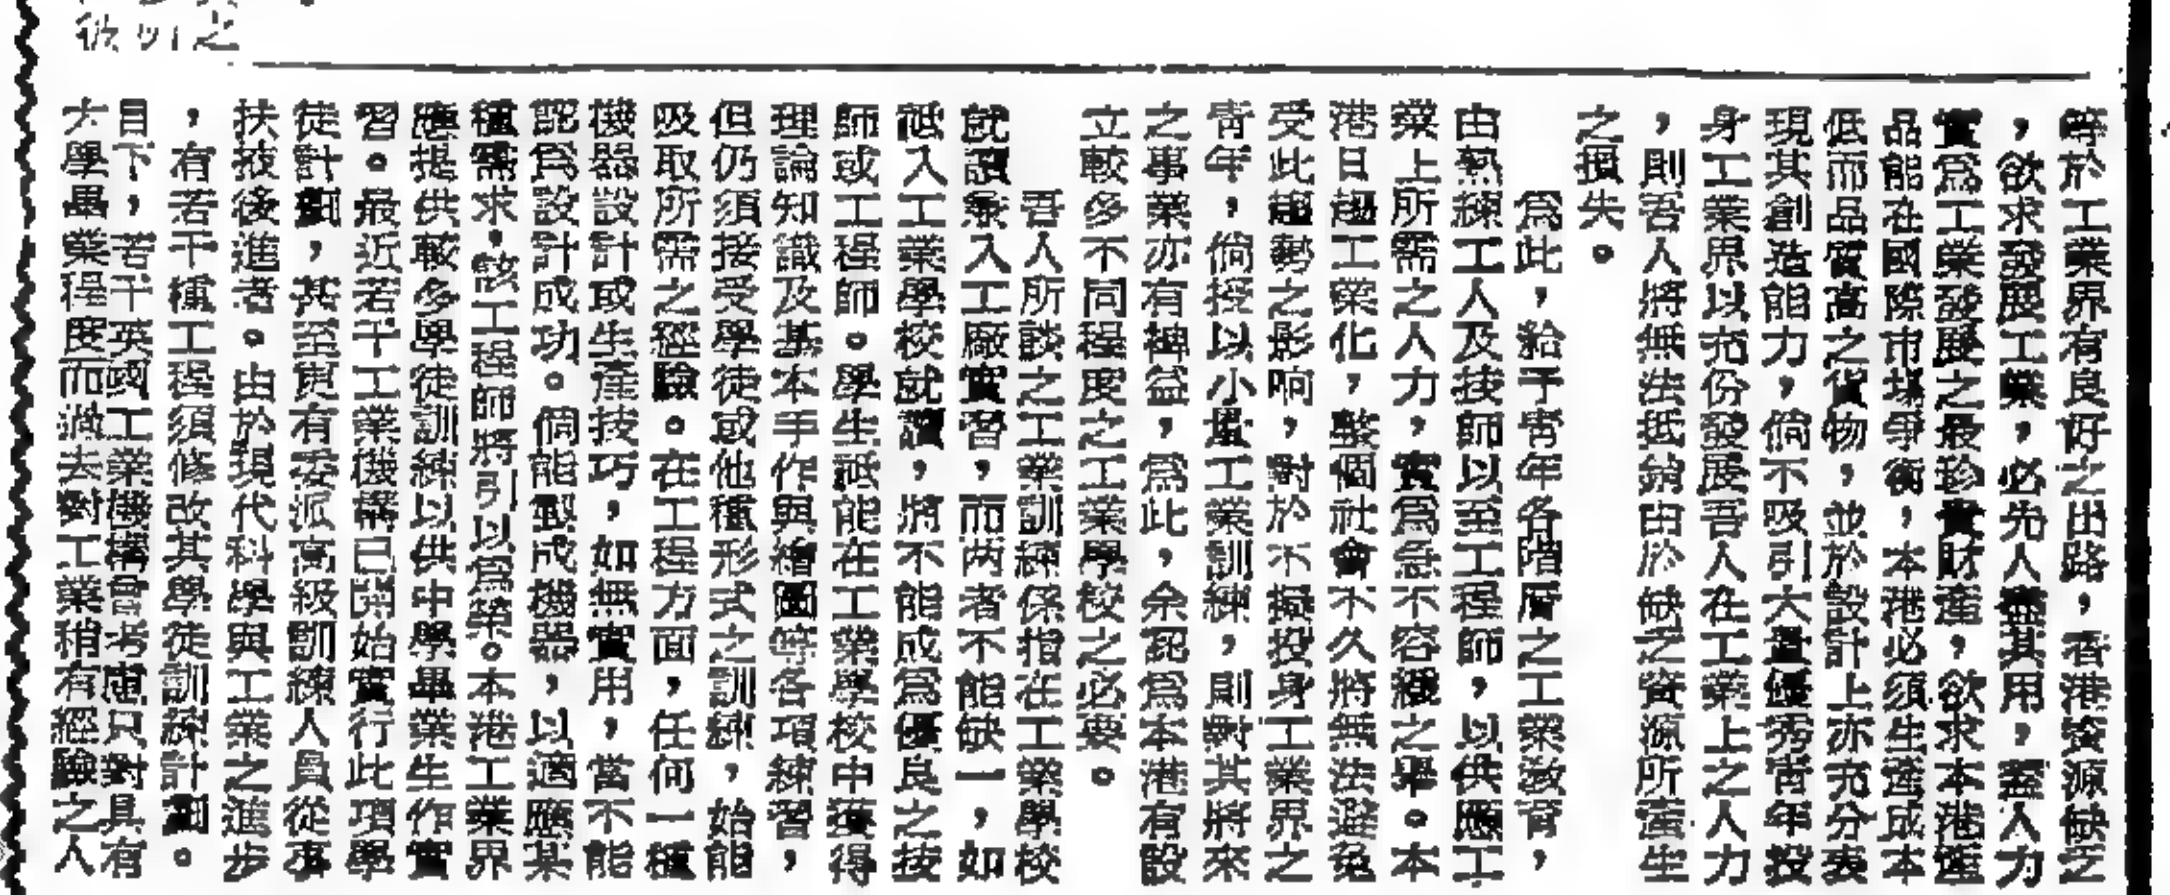 等於工業界有良好之出路，香港資源缺乏
，欲求發展工業，必先人盡其用，蓋人力
實為工業發展之最珍貴財產，欲求本港產
品能在國際市場爭衡，本港必須生產成本
低而品質高之貨物，並於設計上亦充分表
現其創造能力，倘不吸引大量優秀青年投
身工業界以充份發展吾人在工業上之人力
，則吾人將無法抵銷由於缺乏資源所產生
之損失。
為此，給予青年各階層之工業教育，
由熟練工人及技師以至工程師，以供應工
業上所需之人力，實為急不容緩之舉。本
港日趨工業化，整個社會不久將無法避免
受此趨勢之影响，對於不擬投身工業界之
青年，倘授以小量工業訓練，則對其將來
之事業亦有裨益，為此，余認為本港有設
立較多不同程度之工業學校之必要。
吾人所談之工業訓練係指在工業學校
就讀兼入工廠實習，而两者不能缺一，如
祗入工業學校就讀，將不能成為優良之技
師或工程師。學生祗能在工業學校中獲得
理論知識及基本手作與繪圖等各項練習，
但仍須接受學徒或他種形式之訓練，始能
吸取所需之經驗。在工程方面，任何一種
機器設計或生產技巧，如無實用，當不能
認為設計成功。倘能製成機器，以適應某
種需求，該工程師將引以為榮。本港工業界
應提供較多學徒訓練以供中學畢業生作實
習。最近若干工業機構已開始實行此項學
徒計劃，甚至更有委派高級訓練人員從事
扶掖後進者。由於現代科學與工業之進步
，有若干種工程須修改其學徒訓練計劃。
目下，若干英國工業機構會考慮只對具有
大學畢業程度而過去對工業稍有經驗之人